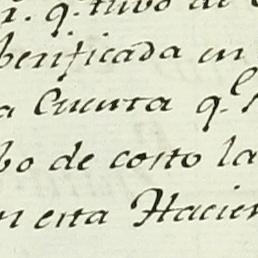 r. q.e tubo de
berificada en
a Cuenta q.e
bo de costo la
n esta Hacien